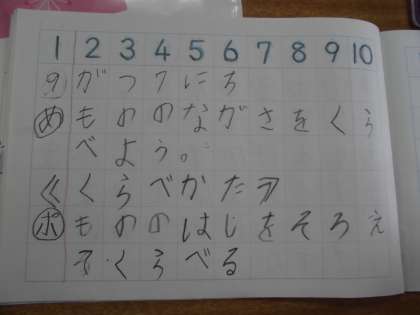 1 2 3 4 5 6 7 8 9 10
9がつ7にち
めもののながさをくら
べよう。
《くらべかた》
ポもののはじをそろえ
てくらべる